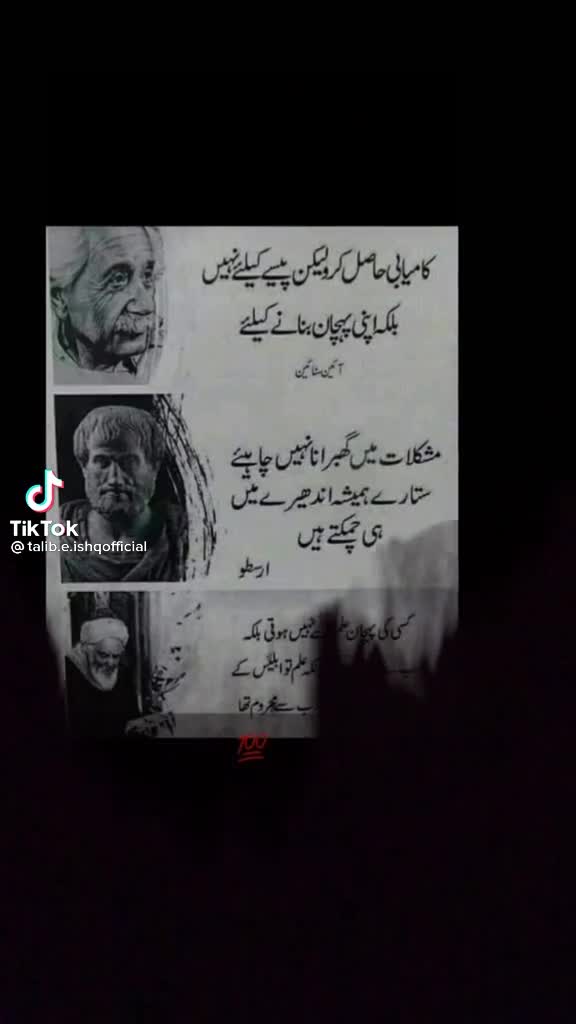 کامیابی حاصل کرو لیکن پیسے کیلئے نہیں
بلکہ اپنی پہچان بنانے کیلئے
آئین سٹائین
مشکلات میں گھبرانا نہیں چاہیئے
ستارے ہمیشہ اندھیرے میں
ہی چمکتے ہیں
ارسطو
کسی کی پہچان علم سے نہیں ہوتی بلکہ
علم تو ابلیس کے
سے محروم تھا
TikTok
@talib.e.ishqofficial